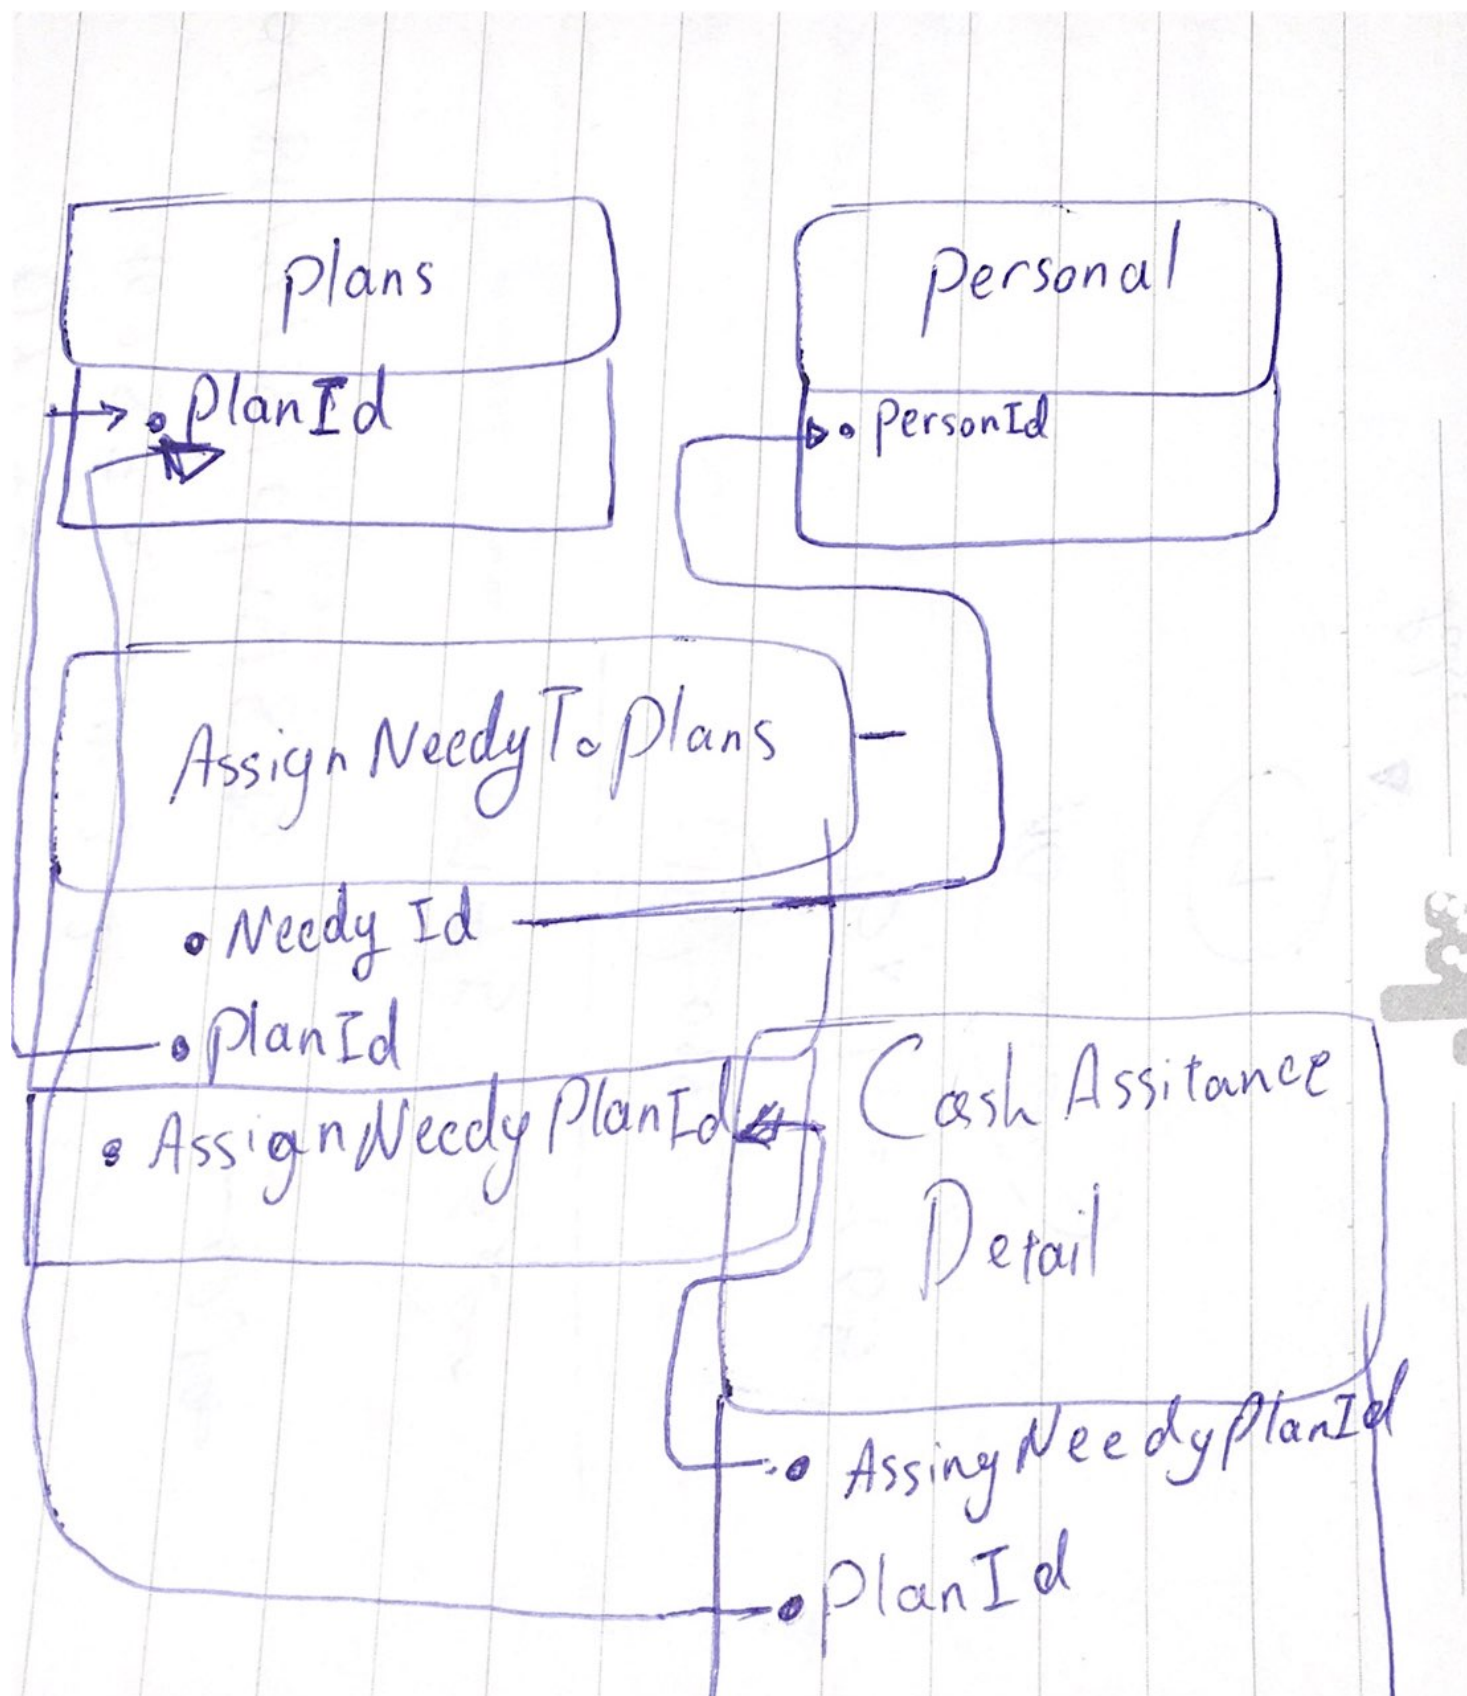 plans
personal
PlanId
personId
AssignNeedyToplans
Needy Id
planId
AssignNeedyPlanId
Cash Assitance
Detail
AssingNeedyplanId
planId